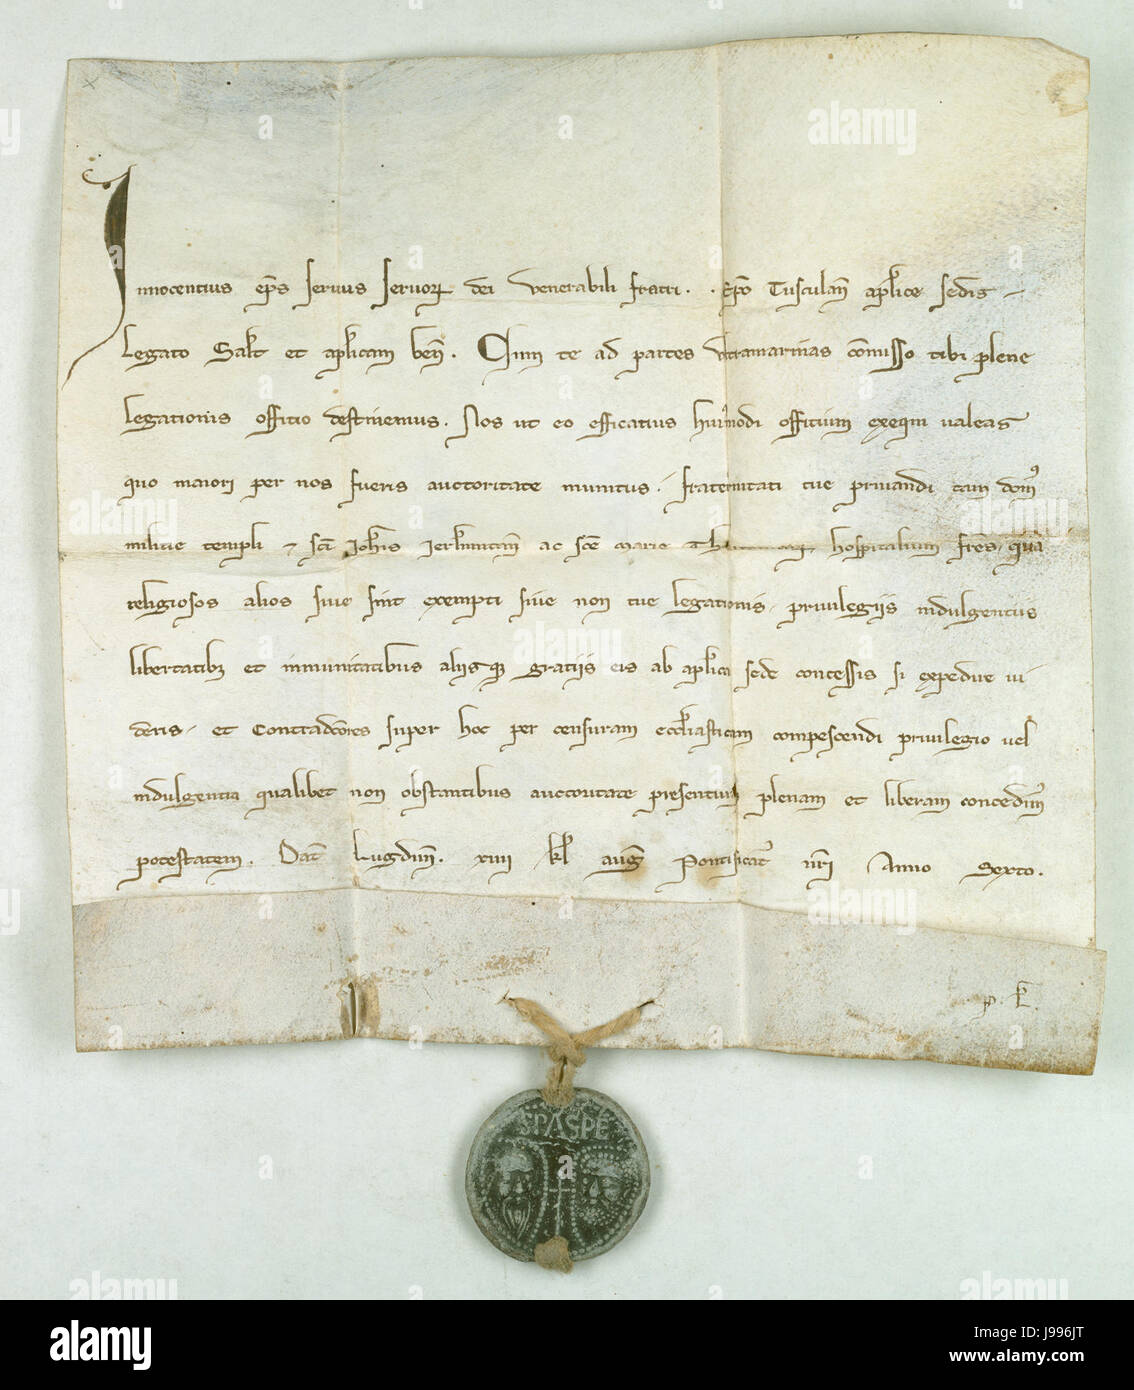 Innocentius ep̄s servus servoꝝ dei venerabili fratri . . Ep̄o Tusculan̄ aplice sedis
legato Salt̄ et aplicam ben̄ . Cum te ad partes ultramarinas cōmisso tibi plene
legationis offitio destinemus . Nos ut eo efficatius huiꝰmodi offitium exequi valeas
quo maiori per nos fueris auctoritate munitus . fraternitati tue privandi tam domꝰ
militie templi ⁊ sc̄i Joh̄is Jerl̄imitan̄ ac sc̄e Marie hospitalium fr̄es quā
religiosos alios sive sint exempti sive non tue legationis privilegiis indulgentiis
libertatibꝫ et inmunitatibus aliisqꝫ gratiis eis ab aplica sede concessis si expedire vi
deris et contradc̄ores super hoc per censuram eccl̄iasticam compescendi privilegio vel
indulgentia qualibet non obstantibus auctoritate presentium plenam et liberam concedimꝰ
potestatem . Dat̄ Lugdun̄ . xiiii kl̄ auḡ Pontificatꝰ nr̄i Anno Sexto .
p. k̄.
SPASPE
alamy
Image ID: J996JT
www.alamy.com